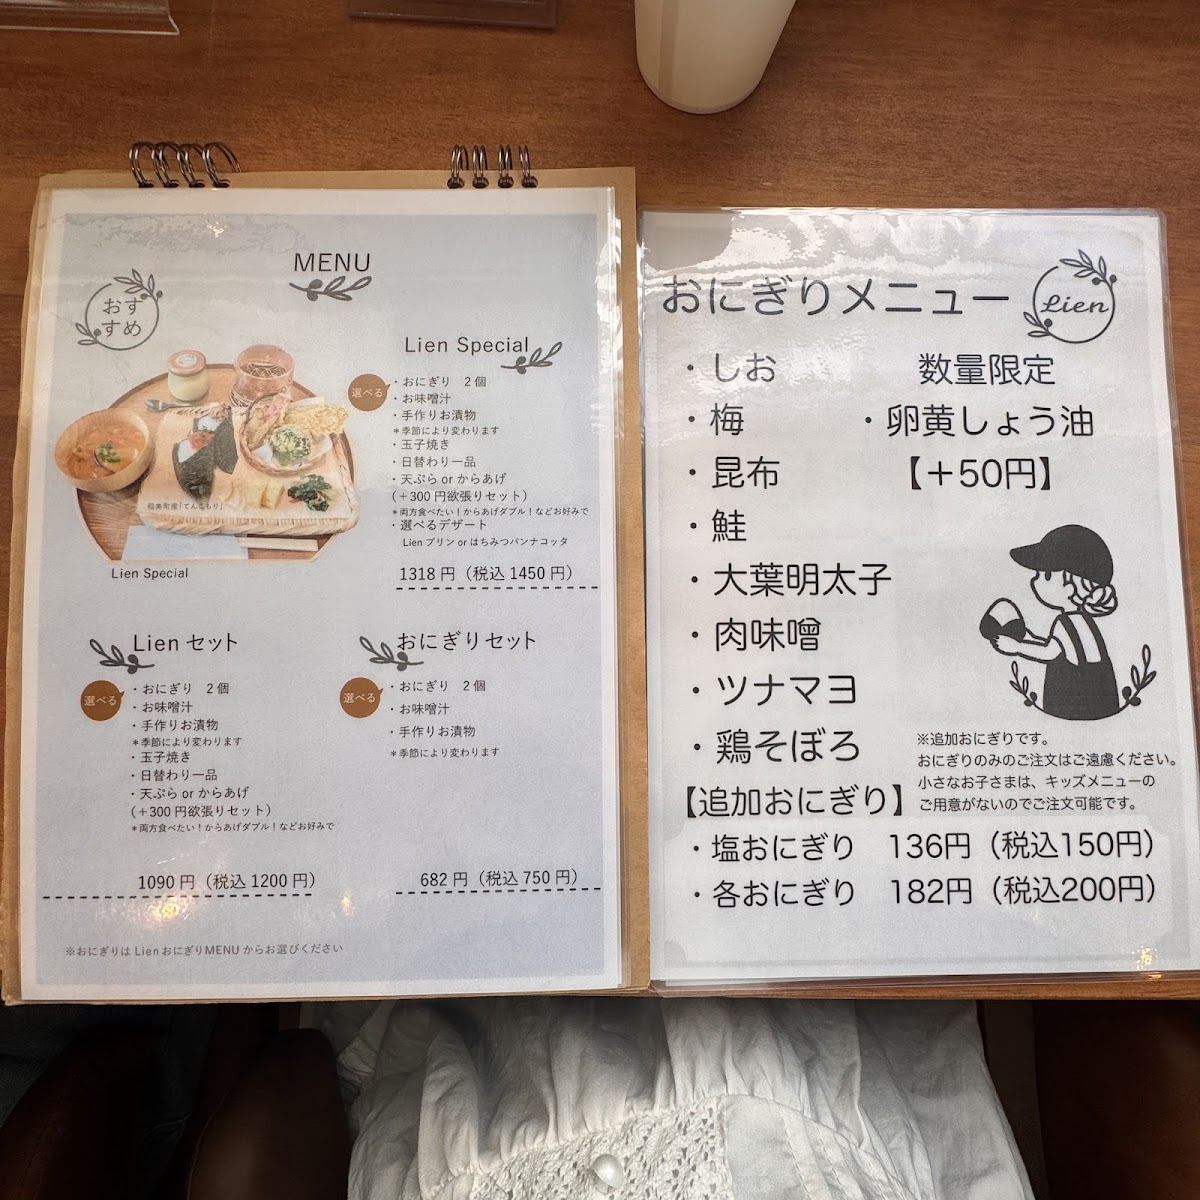 MENU
おす
すめ
Lien Special
選べる
・おにぎり　2個
・お味噌汁
・手作りお漬物
＊季節により変わります
・玉子焼き
・日替わり一品
・天ぷら or からあげ
(＋300 円欲張りセット)
＊両方食べたい！からあげダブル！などお好みで
・選べるデザート
Lien プリン or はちみつパンナコッタ
1318 円（税込 1450 円）
稲美町産「てんこもり」
Lien Special
Lien セット
選べる
・おにぎり　2個
・お味噌汁
・手作りお漬物
＊季節により変わります
・玉子焼き
・日替わり一品
・天ぷら or からあげ
(＋300 円欲張りセット)
＊両方食べたい！からあげダブル！などお好みで
1090 円（税込 1200 円）
おにぎりセット
選べる
・おにぎり　2個
・お味噌汁
・手作りお漬物
＊季節により変わります
682 円（税込 750 円）
※おにぎりは Lien おにぎりMENU からお選びください
おにぎりメニュー
Lien
・しお
・梅
・昆布
・鮭
・大葉明太子
・肉味噌
・ツナマヨ
・鶏そぼろ
数量限定
・卵黄しょう油
【＋50円】
※追加おにぎりです。
おにぎりのみのご注文はご遠慮ください。
小さなお子さまは、キッズメニューの
ご用意がないのでご注文可能です。
【追加おにぎり】
・塩おにぎり　136円（税込150円）
・各おにぎり　182円（税込200円）